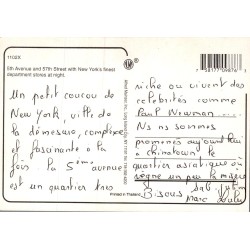 1102X
5th Avenue and 57th Street with New York's finest
department stores at night.
Un petit coucou de
New York, ville de
la démesure, complexe
et fascinante à la
fois. la 5ème avenue
est un quartier très
riche où vivent des
célébrités comme
Paul Newman...
Ns ns sommes
promenés aujourd'hui
à chinatown le
quartier asiatique où
règne un peu la misère
Bisous
Marc
Printed in Thailand